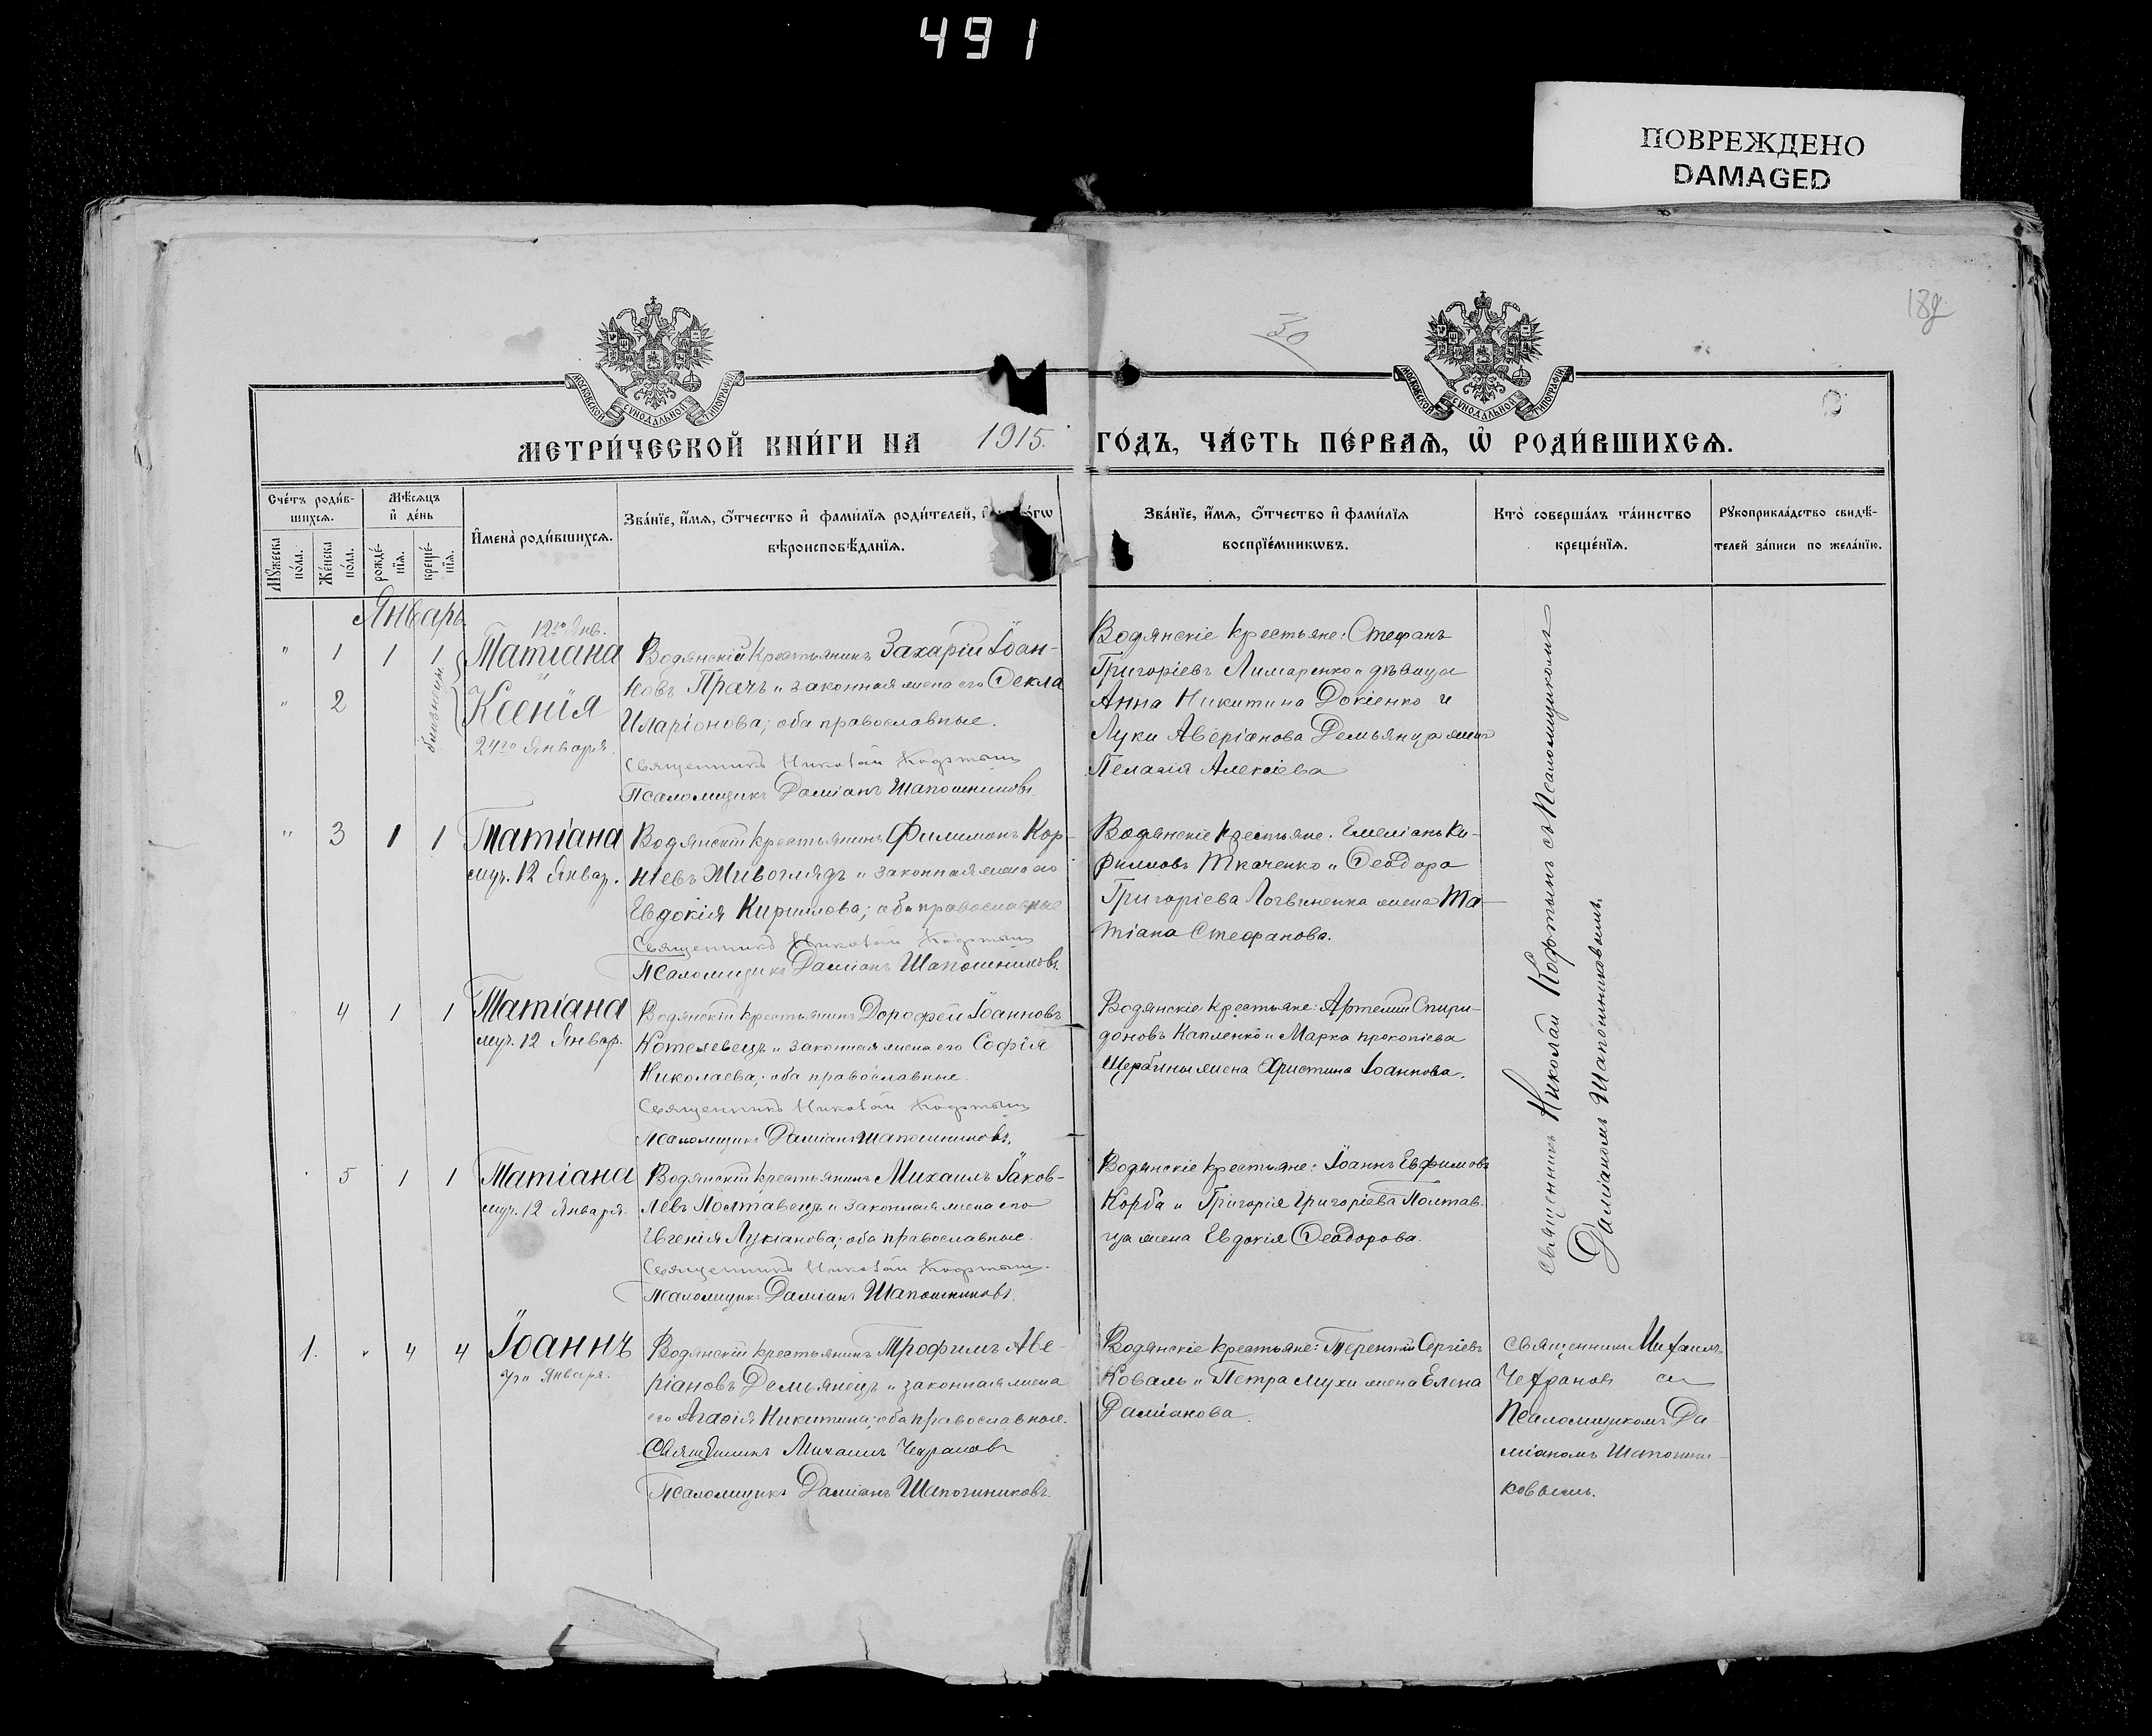 491
ПОВРЕЖДЕНО
DAMAGED
30
МОСКОВСКОЙ СѴНОДАЛЬНОЙ ТИПОГРАФІИ
МОСКОВСКОЙ СѴНОДАЛЬНОЙ ТИПОГРАФІИ
МЕТРИ́ЧЕСКОЙ КНИ́ГИ НА 1915. ГО́ДЪ, ЧА́СТЬ ПЕ́РВАѦ, Ѡ҆ РОДИ́ВШИХСѦ.
Сче́тъ роди́в-
шихсѧ.
Мѣ́сѧцъ
и҆ де́нь
Мꙋ́жеска
по́ла.
Же́нска
по́ла.
рожде́-
нїѧ.
креще́-
нїѧ.
И҆мена̀ роди́вшихсѧ.
Зва́нїе, и҆́мѧ, ѻ҆́тчество и҆ фами́лїѧ роди́телей, и҆
вѣроисповѣ́данїѧ.
Зва́нїе, и҆́мѧ, ѻ҆́тчество и҆ фами́лїѧ
воспрїе́мникωвъ.
Кто̀ соверша́лъ та́инство
креще́нїѧ.
Рꙋкоприкла́дство свидѣ́-
телей за́писи по жела́нїю.
Январь.
" 1 1 1 Татіана 12го Янв.
и
" 2 Ксенія
24го Января.
близнецы
Водянскій крестьянинъ Захарій Іоан-
новъ Прачъ и законная жена его Ѳекла
Иларіонова; оба православные.
Священникъ Николай Кофтынъ
Псаломщикъ Даміанъ Шапошниковъ.
Водянскіе крестьяне: Стефанъ
Григоріевъ Лимаренко и дѣвица
Анна Никитина Докіенко и
Луки Аверіанова Демьянца жена
Пелагія Алексіева
" 3 1 1 Татіана
муч. 12 Январ.
Водянскій крестьянинъ Филимонъ Кор-
ніевъ Живоглядъ и законная жена его
Евдокія Кириллова; оба православные
Священникъ Николай Кофтынъ
Псаломщикъ Даміанъ Шапошниковъ.
Водянскіе крестьяне: Емеліанъ Ки-
рилловъ Ткаченко и Ѳеодора
Григоріева Логвиненка жена Та-
тіана Стефанова.
4 1 1 Татіана
муч. 12 Январ.
Водянскій крестьянинъ Дорофей Іоанновъ
Котелевецъ и законная жена его Софія
Николаева; оба православные.
Священникъ Николай Кофтынъ
Псаломщикъ Даміанъ Шапошниковъ.
Водянскіе крестьяне: Артемій Спири-
доновъ Капленко и Марка Прокопіева
Щербины жена Христина Іоаннова.
5 1 1 Татіана
муч. 12 Января.
Водянскій крестьянинъ Михаилъ Іаков-
левъ Полтавецъ и законная жена его
Евгенія Лукіанова; оба православные.
Священникъ Николай Кофтынъ.
Псаломщикъ Даміанъ Шапошниковъ.
Водянскіе крестьяне: Іоаннъ Евфимовъ
Корба и Григорія Григоріева Полтав-
ца жена Евдокія Ѳеодорова.
Священникъ Николай Кофтынъ съ Псаломщикомъ
Даміаномъ Шапошниковымъ.
1. " 4 4 Іоаннъ
7го Января.
Водянскій крестьянинъ Трофимъ Аве-
ріановъ Демьянецъ и законная жена
его Агафія Никитина; оба православные.
Священникъ Михаилъ Чефрановъ
Псаломщикъ Даміанъ Шапошниковъ.
Водянскіе крестьяне: Терентій Сергіевъ
Коваль и Петра Мухи жена Елена
Даміанова.
Священникъ Михаилъ
Чефрановъ съ
Псаломщикомъ Да-
міаномъ Шапошни-
ковымъ.